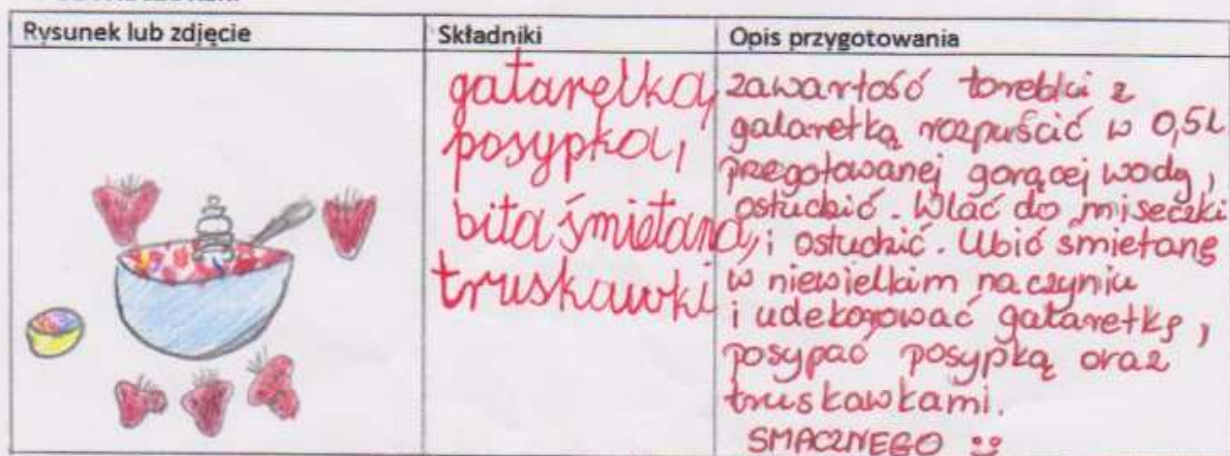 Rysunek lub zdjęcie
Składniki
Opis przygotowania
gatarełka,
posypka,
bita śmietana,
truskawki
zawartość torebki z
galaretką rozpuścić w 0,5L
przegotowanej gorącej wody,
ostudzić. Wlać do miseczki
i ostudzić. Ubić śmietanę
w niewielkim naczyniu
i udekorować galaretkę,
posypać posypką oraz
truskawkami.
SMACZNEGO